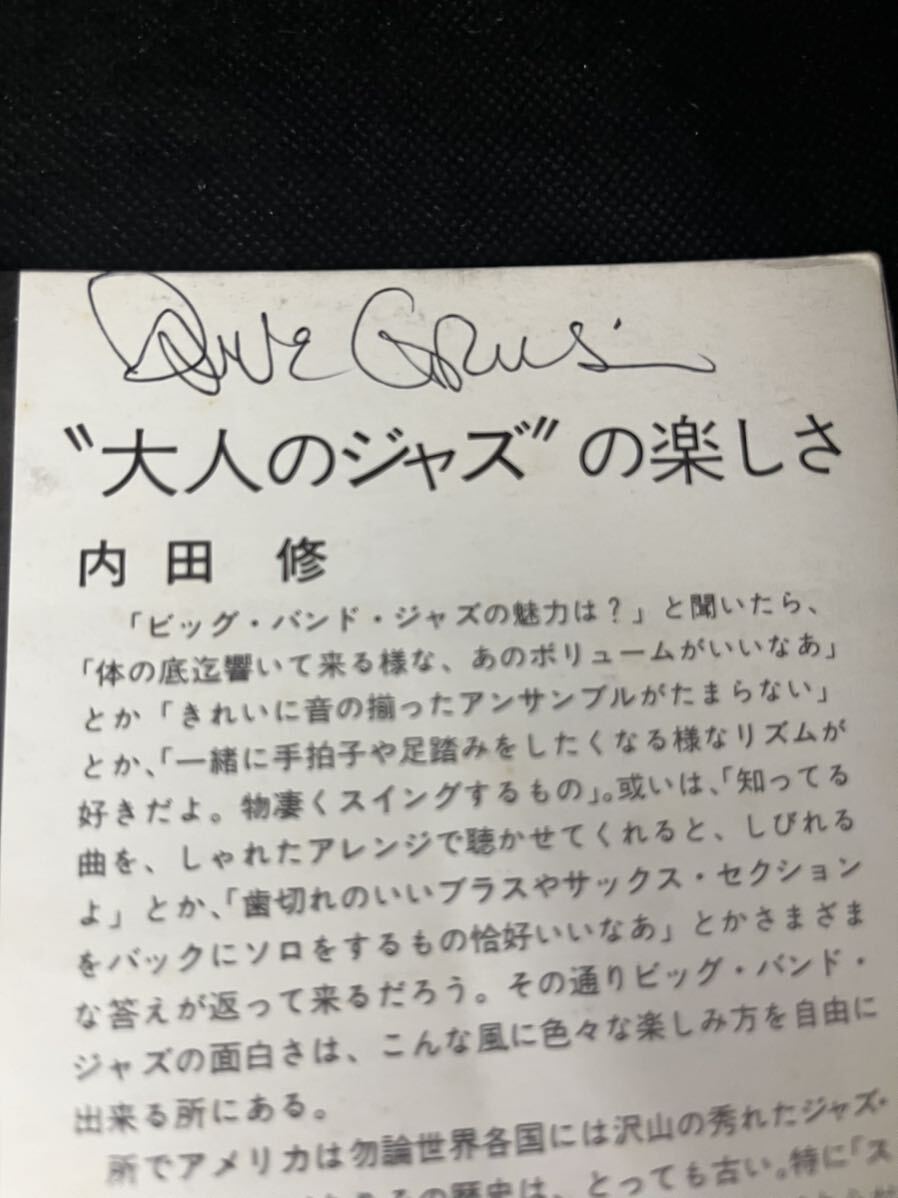 Dave Grusin
〝大人のジャズ〞の楽しさ
内田　修
「ビッグ・バンド・ジャズの魅力は？」と聞いたら、
「体の底迄響いて来る様な、あのボリュームがいいなあ」
とか「きれいに音の揃ったアンサンブルがたまらない」
とか、「一緒に手拍子や足踏みをしたくなる様なリズムが
好きだよ。物凄くスイングするもの」。或いは、「知ってる
曲を、しゃれたアレンジで聴かせてくれると、しびれる
よ」とか、「歯切れのいいブラスやサックス・セクション
をバックにソロをするもの恰好いいなあ」とかさまざま
な答えが返って来るだろう。その通りビッグ・バンド・
ジャズの面白さは、こんな風に色々な楽しみ方を自由に
出来る所にある。
所でアメリカは勿論世界各国には沢山の秀れたジャズ・
の歴史は、とっても古い。特に「ス